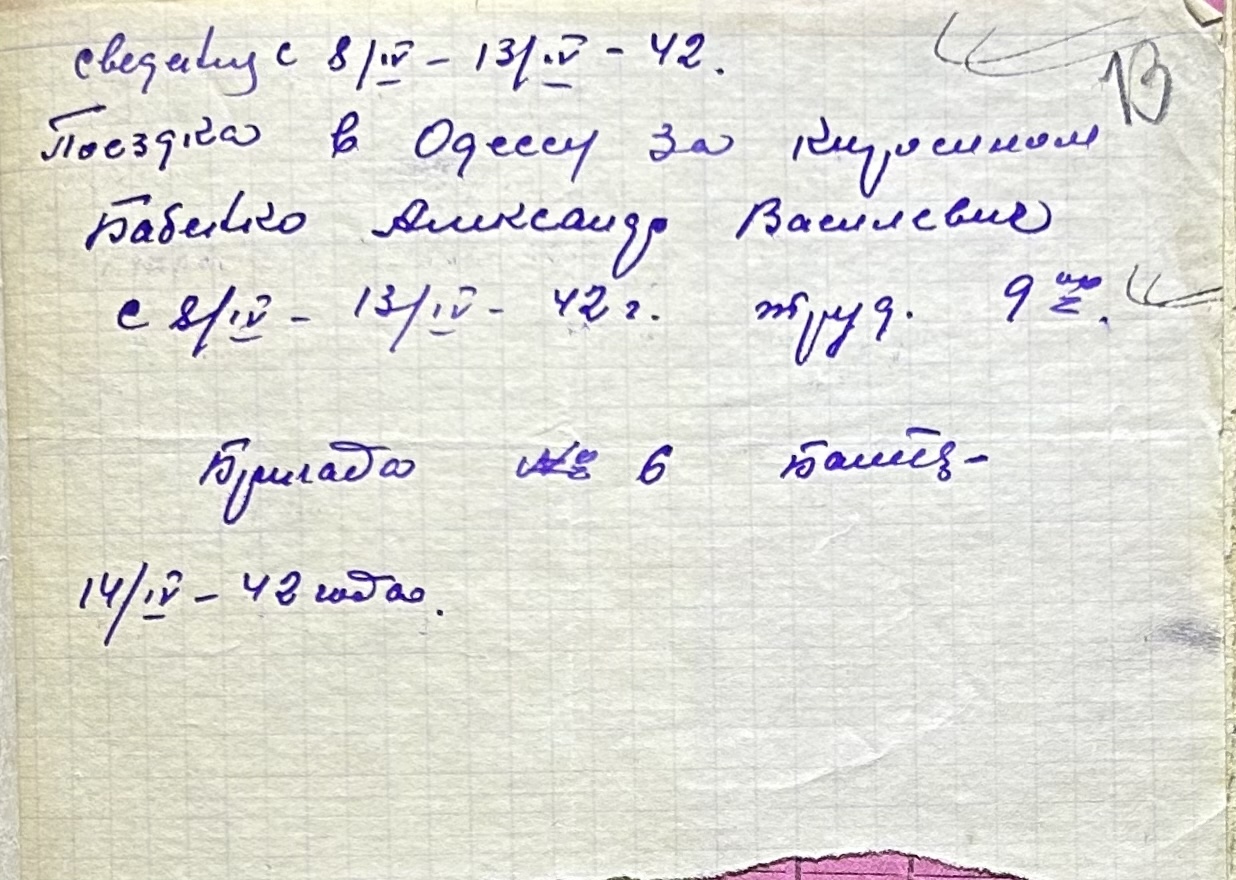 сведения с 8/IV – 13/IV – 42.
13
Поездка в Одессу за Киросином
Бабенко Александр Василевич
с 8/IV – 13/IV – 42 г. труд. 9
Бригада № 6
14/IV – 42 года.